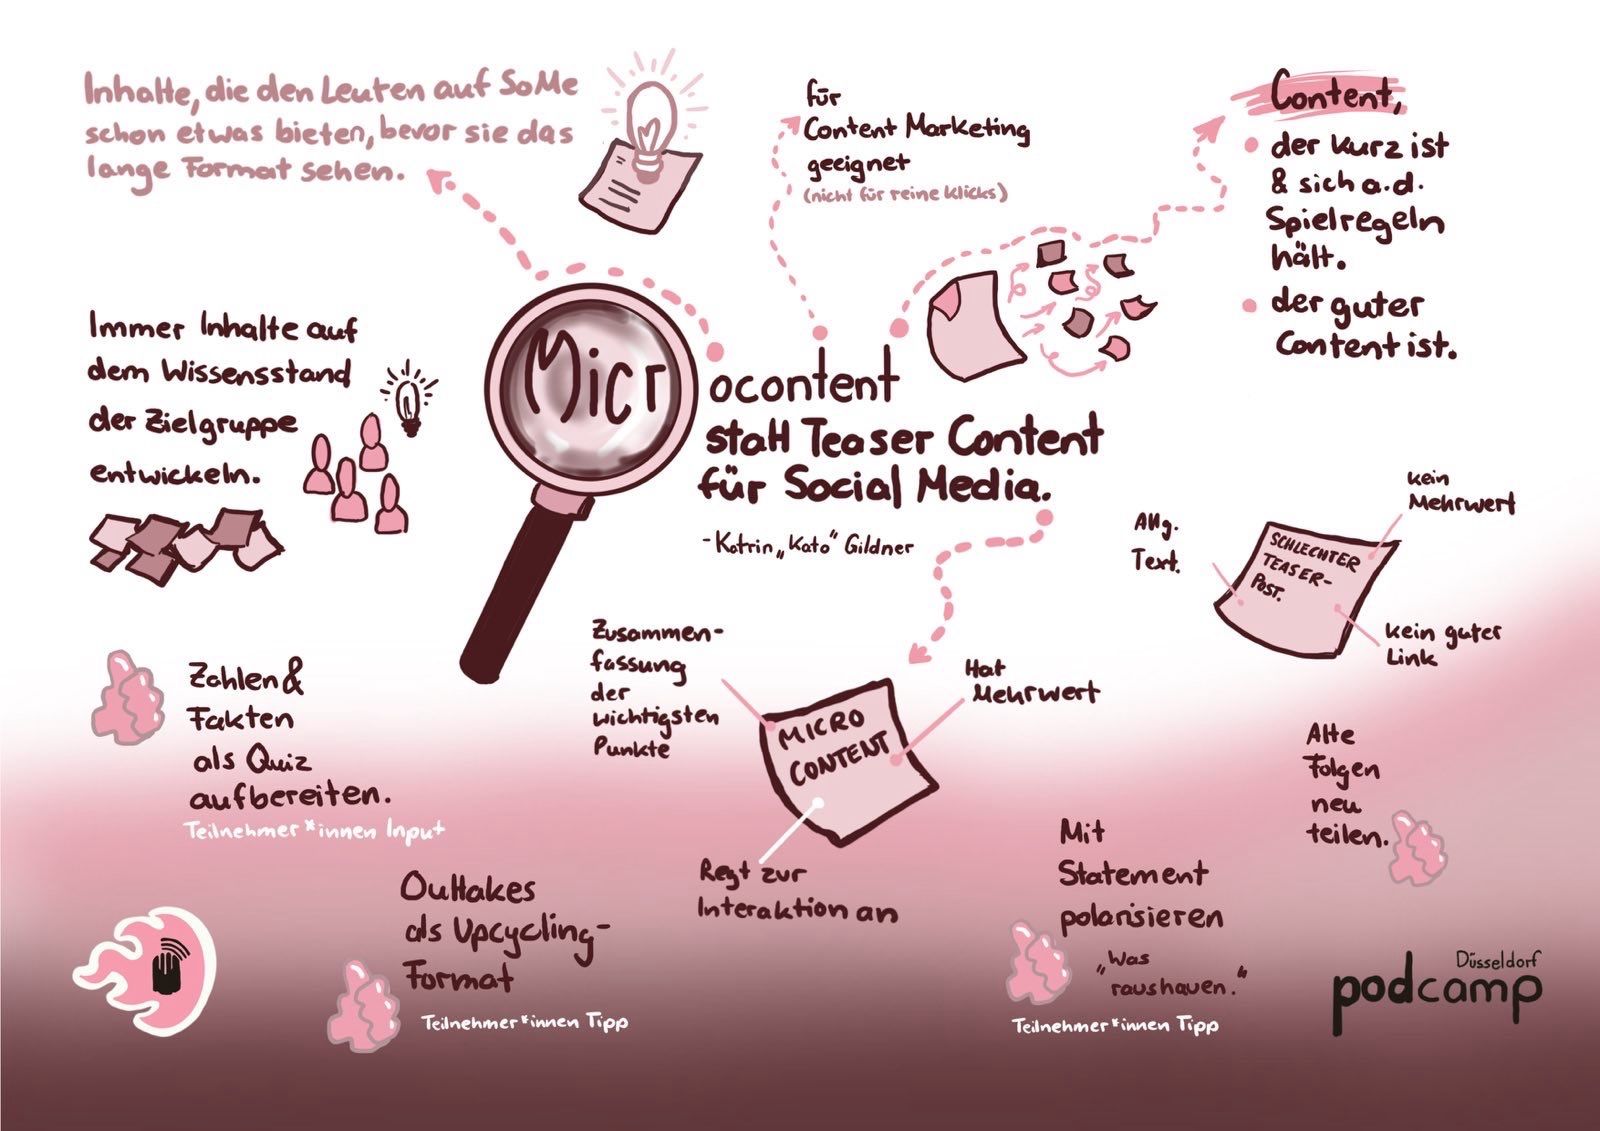 Inhalte, die den Leuten auf SoMe
schon etwas bieten, bevor sie das
lange Format sehen.
für
Content Marketing
geeignet
(nicht für reine Klicks)
Content,
der kurz ist
& sich a.d.
Spielregeln
hält.
der guter
Content ist.
Immer Inhalte auf
dem Wissensstand
der Zielgruppe
entwickeln.
Microcontent
statt Teaser Content
für Social Media.
- Katrin „Kato" Gildner
Allg.
Text.
kein
Mehrwert
SCHLECHTER
TEASER-
POST.
kein guter
Link
Zusammen-
fassung
der
wichtigsten
Punkte
Hat
Mehrwert
MICRO
CONTENT
Regt zur
Interaktion an
Zahlen &
Fakten
als Quiz
aufbereiten.
Teilnehmer*innen Input
Outtakes
als Upcycling-
Format
Teilnehmer*innen Tipp
Mit
Statement
polarisieren
„Was
raushauen."
Teilnehmer*innen Tipp
Alte
Folgen
neu
teilen.
Düsseldorf
podcamp